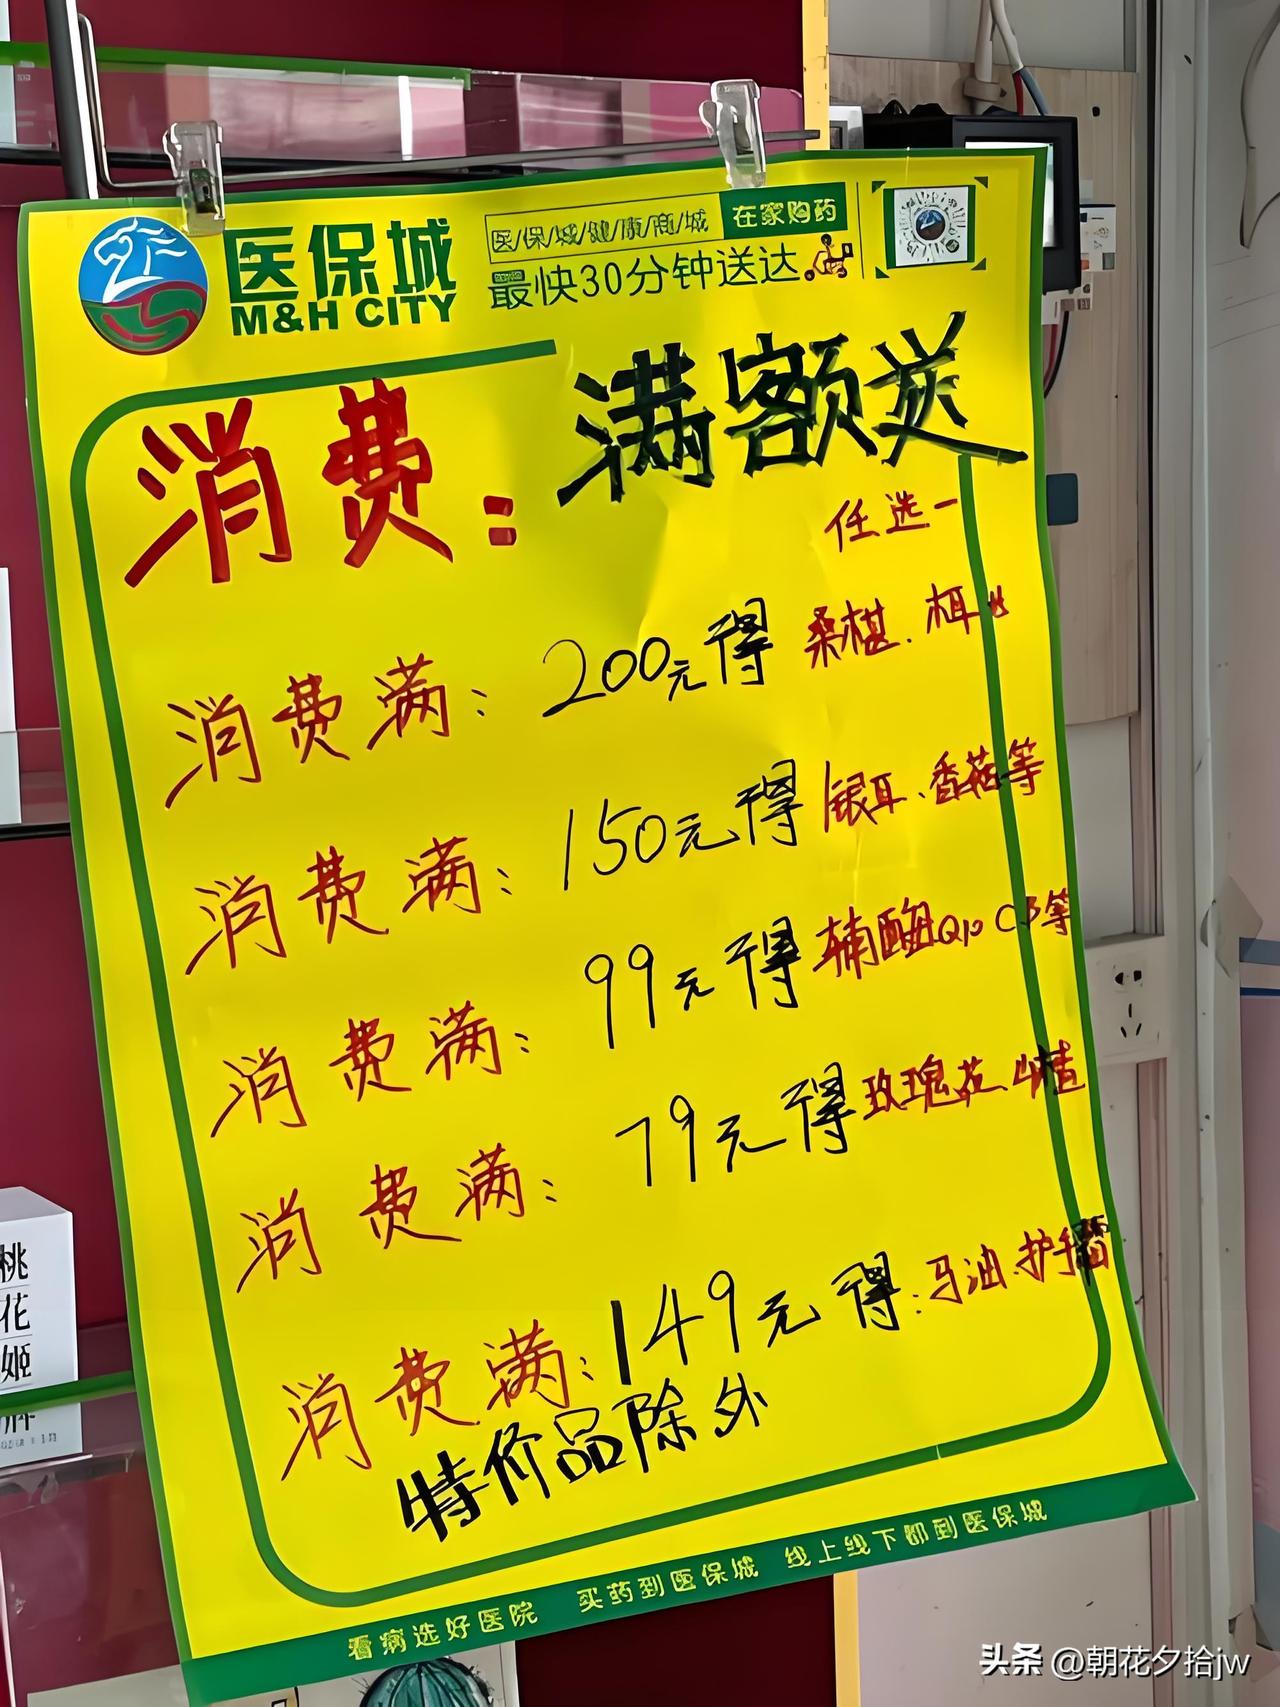 医保城
M&H CITY
医/保/城/健/康/商/城 在家购药
最快30分钟送达
消费：满额送
任选一
消费满：200元得 桑椹、
消费满：150元得 银耳、香菇等
消费满：99元得 辅酶Q10 等
消费满：79元得 玫瑰花、
消费满：149元得：马油、护手霜
特价品除外
看病选好医院 买药到医保城 线上线下都到医保城
桃
花
姬
头条 @朝花夕拾jw